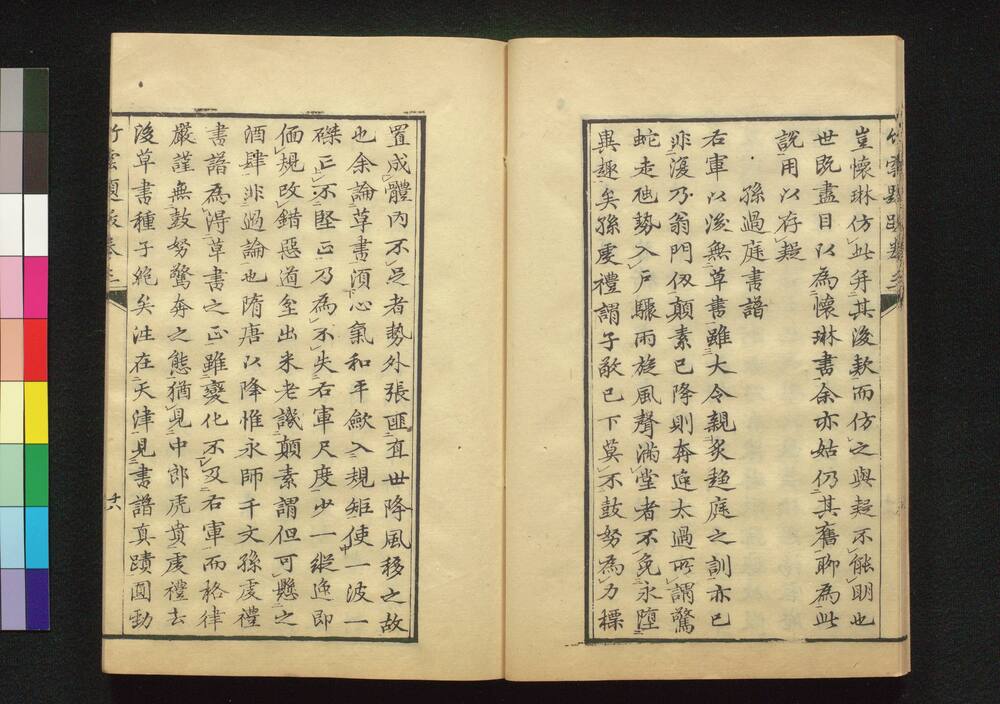 豈懷琳仿此并其後款而仿之與疑不能明也
世既盡目以為懷琳書余亦姑仍其舊聊為此
說用以存疑
孫過庭書譜
右軍以後無草書雖大令親炙趨庭之訓亦已
非復乃翁門仞顛素已降則奔逸太過所謂驚
蛇走虺勢入戶驟雨旋風聲滿堂者不免永墮
異趣矣孫虔禮謂子敬已下莫不鼓努為力標
置成體內不足者勢外張匪直世降風移之故
也余論草書須心氣和平歛入規矩使一波一
磔正不堅正乃為不失右軍尺度少一縱逸即
偭規改錯惡道坌出米老譏顛素謂但可懸之
酒肆非過論也隋唐以降惟永師千文孫虔禮
書譜為淂草書之正雖變化不及右軍而格律
嚴謹無鼓努驚奔之態猶見中郎虎賁虔禮去
後草書種子絶矣泩在天津見書譜真蹟圓勁
竹雲題跋卷三
十六